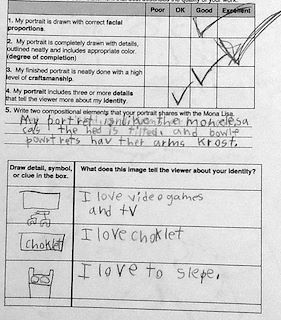 Poor OK Good Excellent
1. My portrait is drawn with correct facial
proportions.
2. My portrait is completely drawn with details,
outlined neatly and includes appropriate color.
(degree of completion)
3. My finished portrait is neatly done with a high
level of craftsmanship.
4. My portrait includes three or more details
that tell the viewer more about my identity.
5. Write two compositional elements that your portrait shares with the Mona Lisa.
My portret is like the monelesa
cals the hed is tilted, and bowle
powstrets hav ther arms krost.
Draw detail, symbol,
or clue in the box.
What does this image tell the viewer about your identity?
I love video games
and tv
choklet
I love choklet
I love to slepe.